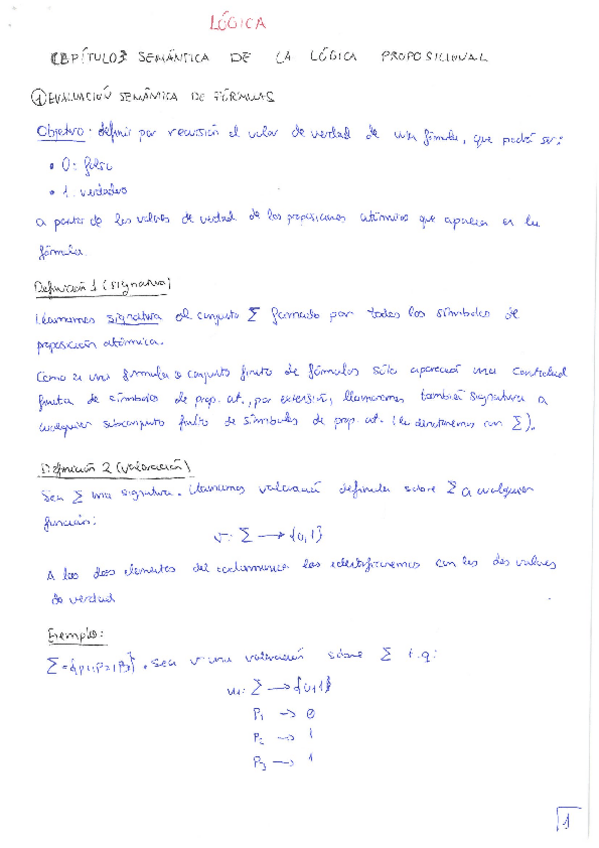 LÓGICA
CAPÍTULO 3 SEMÁNTICA DE LA LÓGICA PROPOSICIONAL
① EVALUACIÓN SEMÁNTICA DE FÓRMULAS
Objetivo: definir por recursión el valor de verdad de una fórmula, que podrá ser:
• 0: falso
• 1: verdadero
a partir de los valores de verdad de las proposiciones atómicas que aparecen en la
fórmula.
Definición 1 (signatura)
Llamamos signatura al conjunto Σ formado por todos los símbolos de
proposición atómica.
Como en una fórmula o conjunto finito de fórmulas sólo aparecerá una cantidad
finita de símbolos de prop. at., por extensión, llamaremos también signatura a
cualquier subconjunto finito de símbolos de prop. at. (la denotaremos con Σ).
Definición 2 (valoración)
Sea Σ una signatura. Llamamos valoración definida sobre Σ a cualquier
función:
v: Σ → {0,1}
A los dos elementos del codominio los identificaremos con los dos valores
de verdad
Ejemplo:
Σ = {p1, p2, p3}. Sea v una valoración sobre Σ t.q:
Σ → {0,1}
P1 → 0
P2 → 1
P3 → 1
1